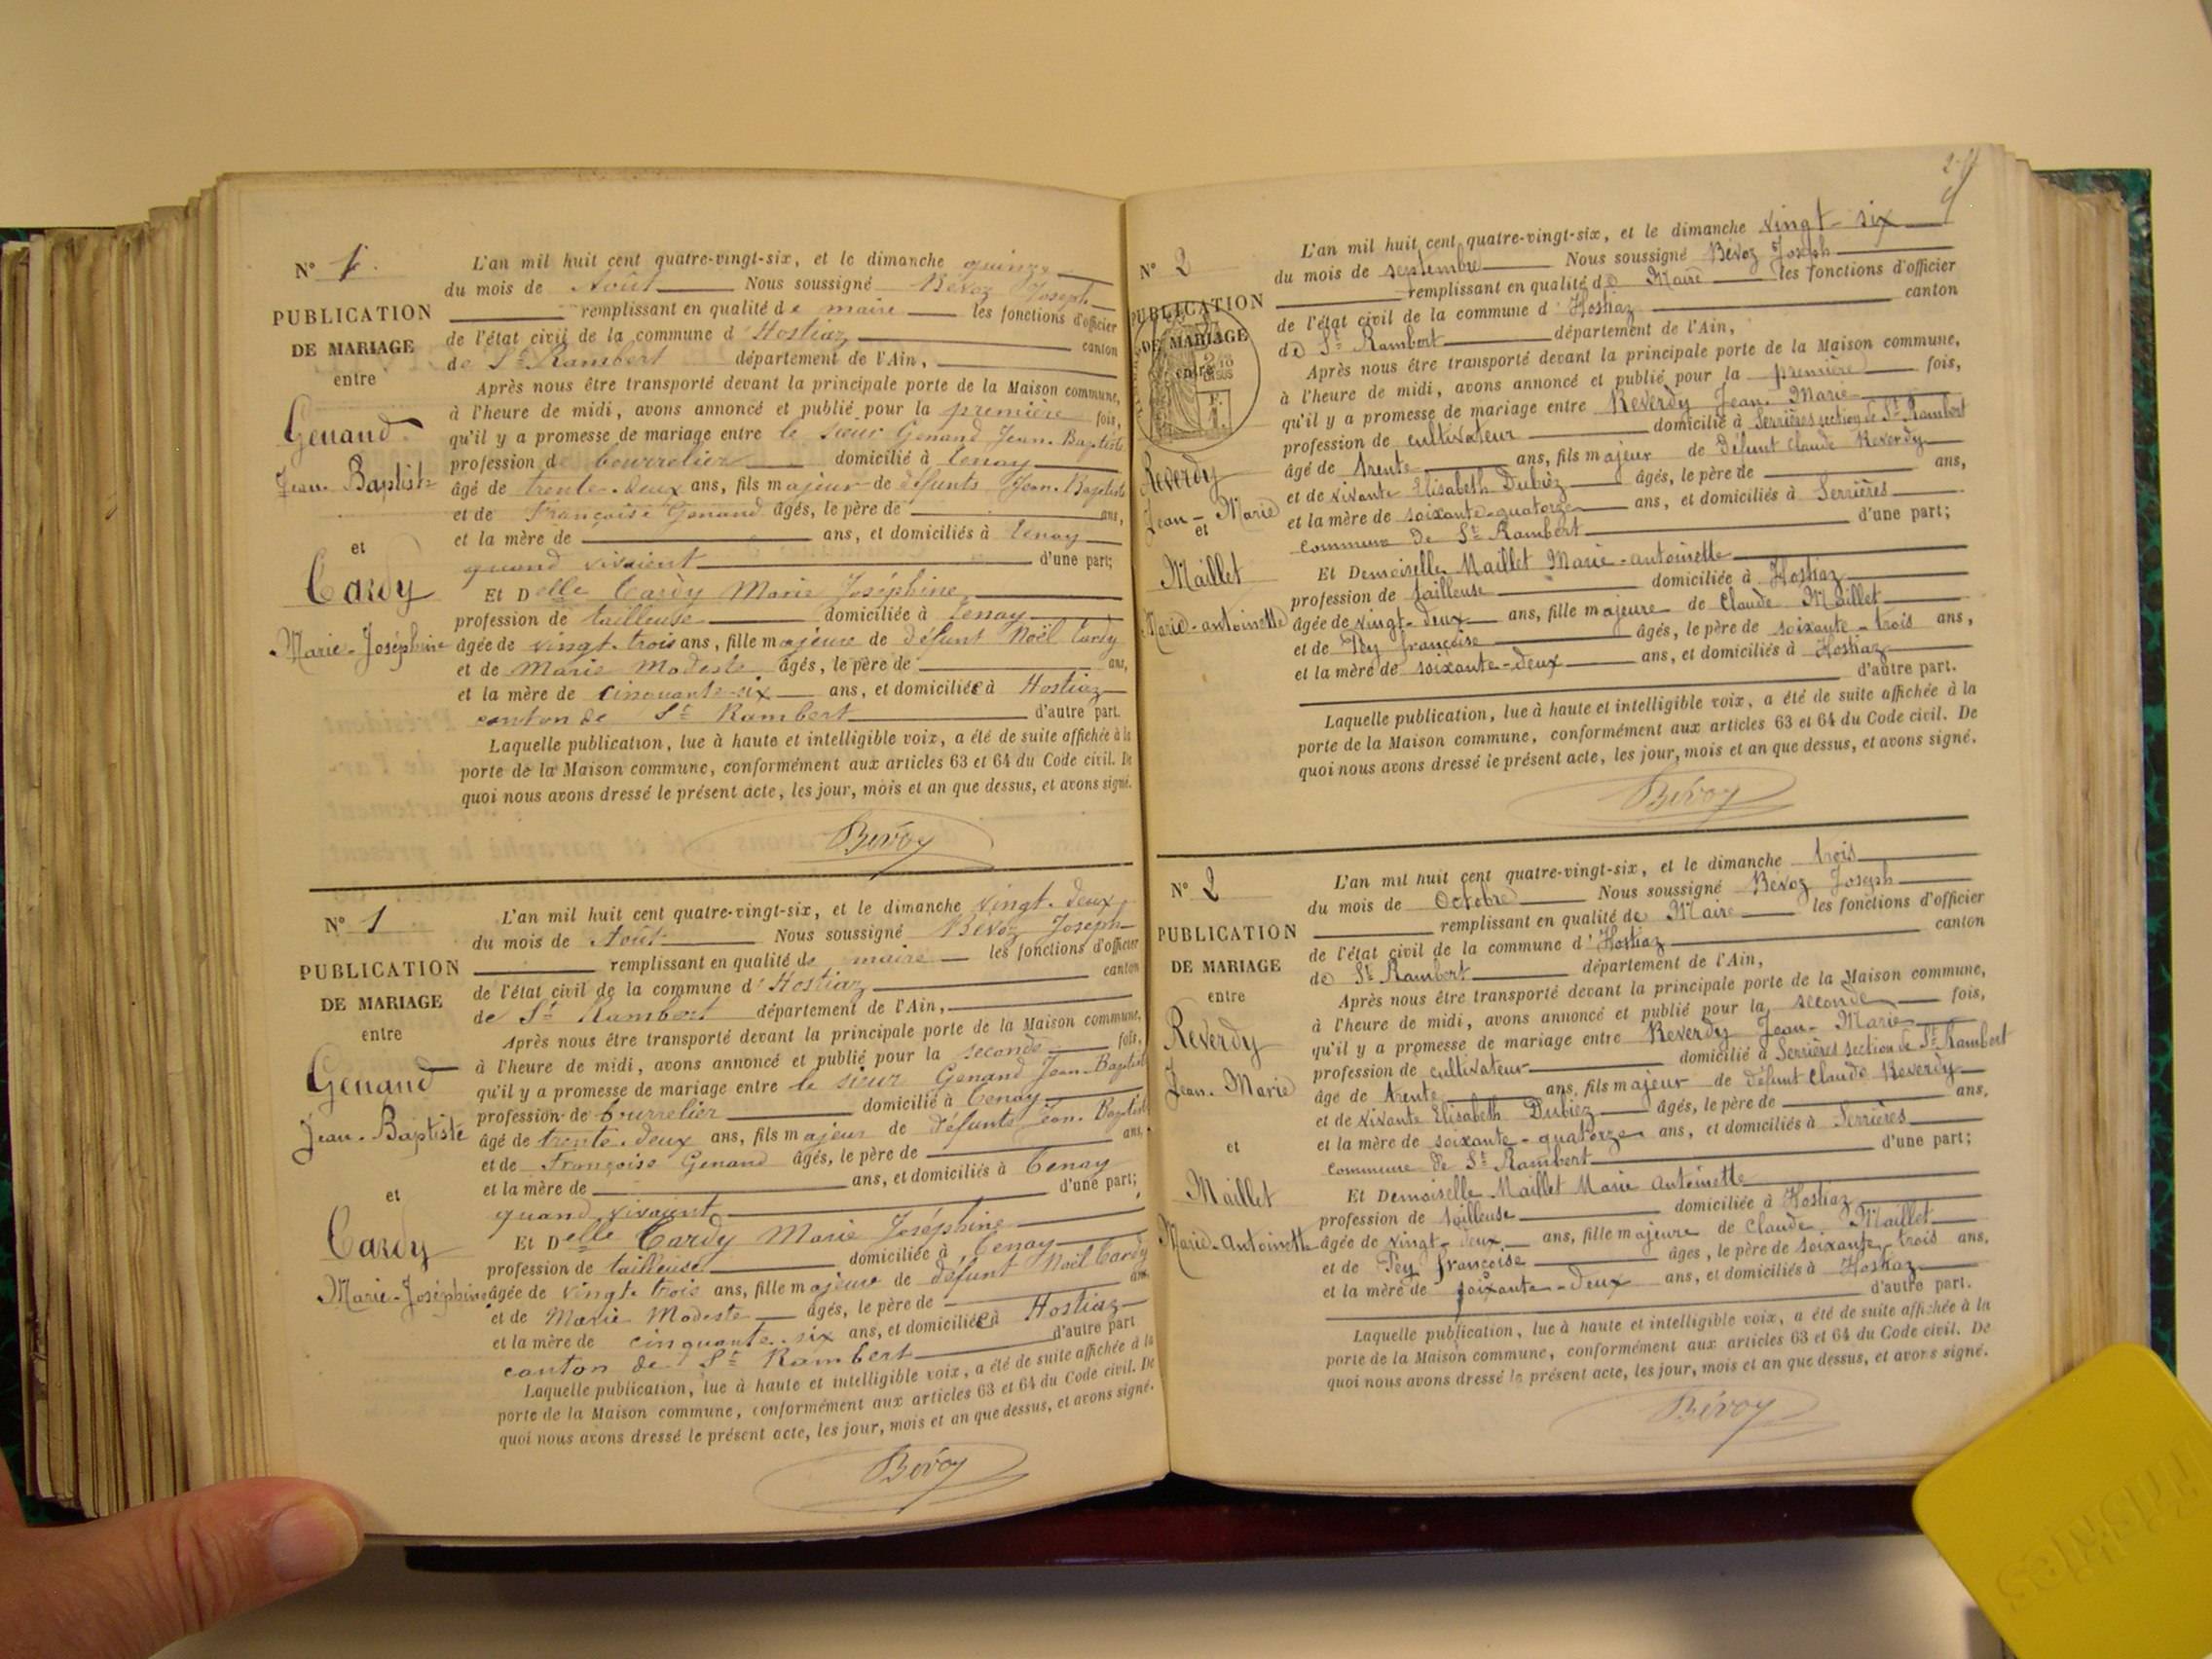 N° 1.
PUBLICATION
DE MARIAGE
entre
Genand
Jean-Baptiste
et
Cardy
Marie-Joséphine
L'an mil huit cent quatre-vingt-six, et le dimanche quinze
du mois de Août Nous soussigné Bévoz Joseph
remplissant en qualité de maire les fonctions d'officier
de l'état civil de la commune d'Hostiaz canton
de St Rambert département de l'Ain,
Après nous être transporté devant la principale porte de la Maison commune,
à l'heure de midi, avons annoncé et publié pour la première fois,
qu'il y a promesse de mariage entre le sieur Genand Jean-Baptiste
profession de bourrelier domicilié à Tenay
âgé de trente-deux ans, fils majeur de défunts Jean-Baptiste
et de Françoise Genand âgés, le père de ans,
et la mère de ans, et domiciliés à Tenay
quand vivaient d'une part;
Et Delle Cardy Marie Joséphine
profession de tailleuse domiciliée à Tenay
âgée de vingt-trois ans, fille majeure de défunt Noël Cardy
et de Marie Modeste âgés, le père de ans,
et la mère de cinquante-six ans, et domiciliée à Hostiaz
canton de St Rambert d'autre part.
Laquelle publication, lue à haute et intelligible voix, a été de suite affichée à la
porte de la Maison commune, conformément aux articles 63 et 64 du Code civil. De
quoi nous avons dressé le présent acte, les jour, mois et an que dessus, et avons signé.
Bévoz
N° 1
PUBLICATION
DE MARIAGE
entre
Genand
Jean-Baptiste
et
Cardy
Marie-Joséphine
L'an mil huit cent quatre-vingt-six, et le dimanche vingt-deux
du mois de Août Nous soussigné Bévoz Joseph
remplissant en qualité de maire les fonctions d'officier
de l'état civil de la commune d'Hostiaz canton
de St Rambert département de l'Ain,
Après nous être transporté devant la principale porte de la Maison commune,
à l'heure de midi, avons annoncé et publié pour la seconde fois,
qu'il y a promesse de mariage entre le sieur Genand Jean-Baptiste
profession de bourrelier domicilié à Tenay
âgé de trente-deux ans, fils majeur de défunts Jean-Baptiste
et de Françoise Genand âgés, le père de ans,
et la mère de ans, et domiciliés à Tenay
quand vivaient d'une part;
Et Delle Cardy Marie Joséphine
profession de tailleuse domiciliée à Tenay
âgée de vingt-trois ans, fille majeure de défunt Noël Cardy
et de Marie Modeste âgés, le père de ans
et la mère de cinquante-six ans, et domiciliée à Hostiaz
canton de St Rambert d'autre part
Laquelle publication, lue à haute et intelligible voix, a été de suite affichée à la
porte de la Maison commune, conformément aux articles 63 et 64 du Code civil. De
quoi nous avons dressé le présent acte, les jour, mois et an que dessus, et avons signé.
Bévoz
N° 2
PUBLICATION
DE MARIAGE
entre
Reverdy
Jean-Marie
et
Maillet
Marie-antoinette
L'an mil huit cent quatre-vingt-six, et le dimanche vingt-six
du mois de septembre Nous soussigné Bévoz Joseph
remplissant en qualité de Maire les fonctions d'officier
de l'état civil de la commune d'Hostiaz canton
de St Rambert département de l'Ain,
Après nous être transporté devant la principale porte de la Maison commune,
à l'heure de midi, avons annoncé et publié pour la première fois,
qu'il y a promesse de mariage entre Reverdy Jean-Marie
profession de cultivateur domicilié à Serrières section de St Rambert
âgé de trente ans, fils majeur de défunt Claude Reverdy
et de vivante Elisabeth Dubiez âgés, le père de ans,
et la mère de soixante-quatorze ans, et domiciliés à Serrières
commune de St Rambert d'une part;
Et Demoiselle Maillet Marie-antoinette
profession de tailleuse domiciliée à Hostiaz
âgée de vingt-deux ans, fille majeure de Claude Maillet
et de Pey françoise âgés, le père de soixante-trois ans,
et la mère de soixante-deux ans, et domiciliés à Hostiaz
d'autre part.
Laquelle publication, lue à haute et intelligible voix, a été de suite affichée à la
porte de la Maison commune, conformément aux articles 63 et 64 du Code civil. De
quoi nous avons dressé le présent acte, les jour, mois et an que dessus, et avons signé.
Bévoz
N° 2
PUBLICATION
DE MARIAGE
entre
Reverdy
Jean-Marie
et
Maillet
Marie-Antoinette
L'an mil huit cent quatre-vingt-six, et le dimanche trois
du mois de Octobre Nous soussigné Bévoz Joseph
remplissant en qualité de Maire les fonctions d'officier
de l'état civil de la commune d'Hostiaz canton
de St Rambert département de l'Ain,
Après nous être transporté devant la principale porte de la Maison commune,
à l'heure de midi, avons annoncé et publié pour la seconde fois,
qu'il y a promesse de mariage entre Reverdy Jean-Marie
profession de cultivateur domicilié à Serrières section de St Rambert
âgé de trente ans, fils majeur de défunt Claude Reverdy
et de vivante Elisabeth Dubiez âgés, le père de ans,
et la mère de soixante-quatorze ans, et domiciliés à Serrières
commune de St Rambert d'une part;
Et Demoiselle Maillet Marie Antoinette
profession de tailleuse domiciliée à Hostiaz
âgée de vingt-deux ans, fille majeure de Claude Maillet
et de Pey françoise âgés, le père de soixante-trois ans,
et la mère de soixante-deux ans, et domiciliés à Hostiaz
d'autre part.
Laquelle publication, lue à haute et intelligible voix, a été de suite affichée à la
porte de la Maison commune, conformément aux articles 63 et 64 du Code civil. De
quoi nous avons dressé le présent acte, les jour, mois et an que dessus, et avons signé.
Bévoz